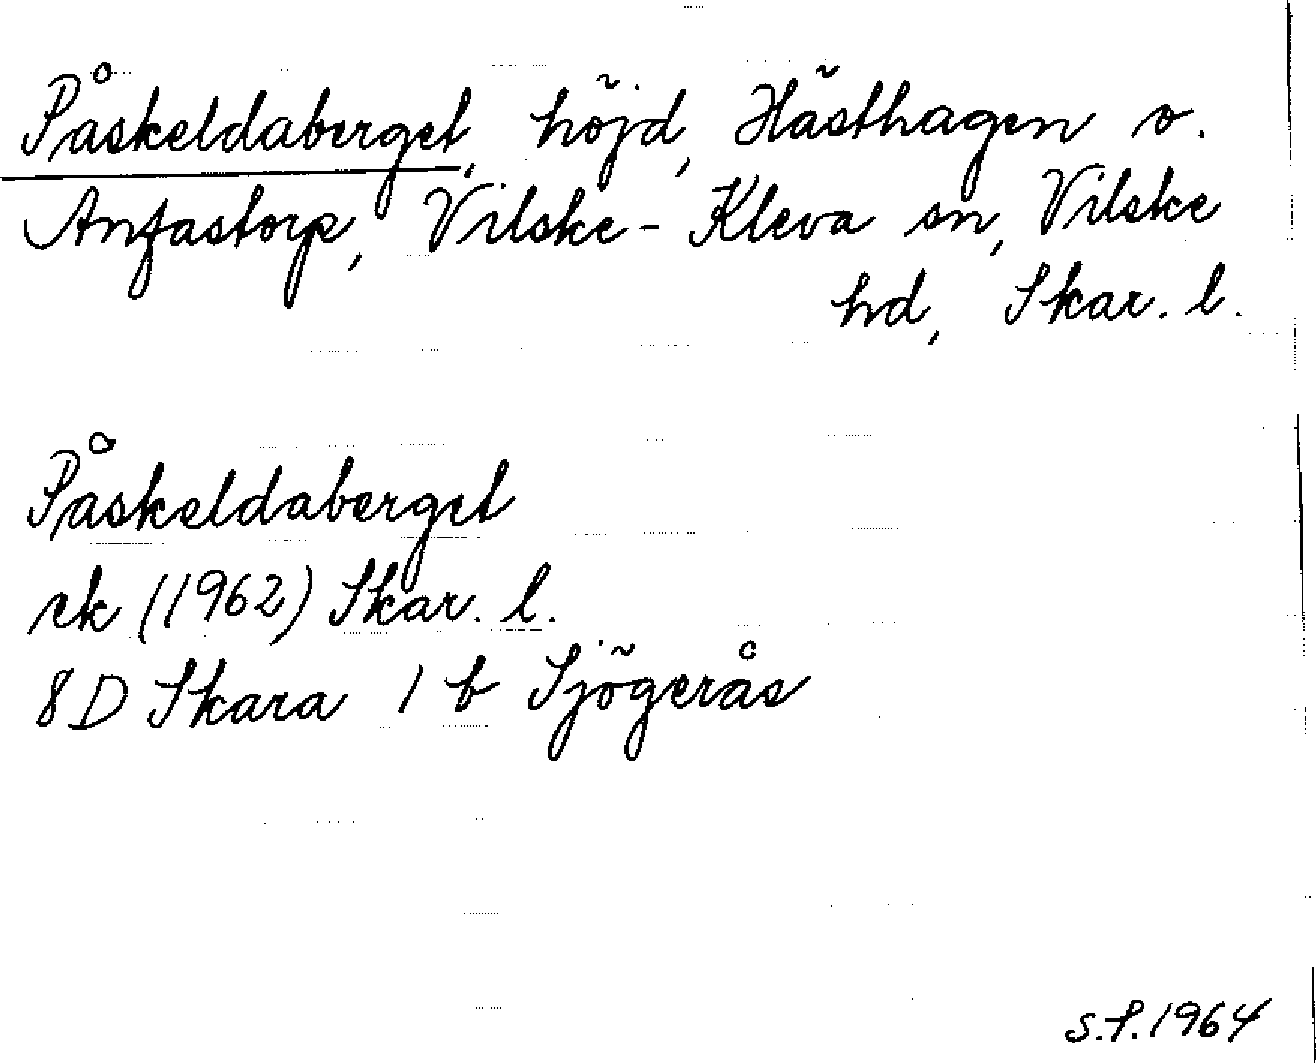 Påskeldaberget, höjd, Hästhagen o.
Anfastorp, Vilske-Kleva sn, Vilske
hd, Skar. l.
Påskeldaberget
ek (1962) Skar. l.
8D Skara 1 b Sjögerås
S.P. 1964